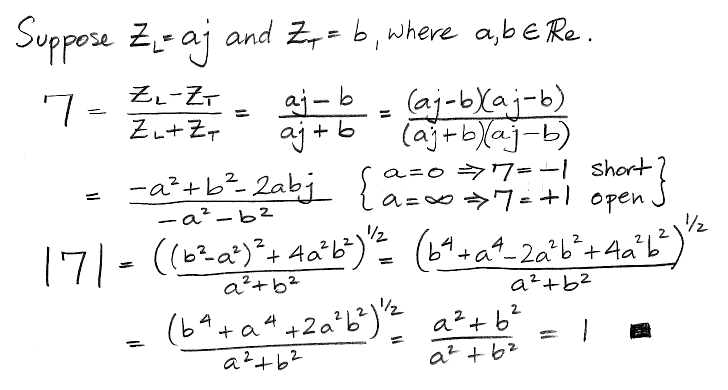 Suppose Z_L = aj and Z_T = b, where a,b ∈ Re.
7 = (Z_L - Z_T)/(Z_L + Z_T) = (aj - b)/(aj + b) = (aj-b)(aj-b)/(aj+b)(aj-b)
= (-a² + b² - 2abj)/(-a² - b²) { a=0 ⇒ 7 = -1 short
a=∞ ⇒ 7 = +1 open }
|7| = ((b²-a²)² + 4a²b²)^1/2/(a²+b²) = (b⁴ + a⁴ - 2a²b² + 4a²b²)^1/2/(a²+b²)
= (b⁴ + a⁴ + 2a²b²)^1/2/(a²+b²) = (a²+b²)/(a²+b²) = 1 ■